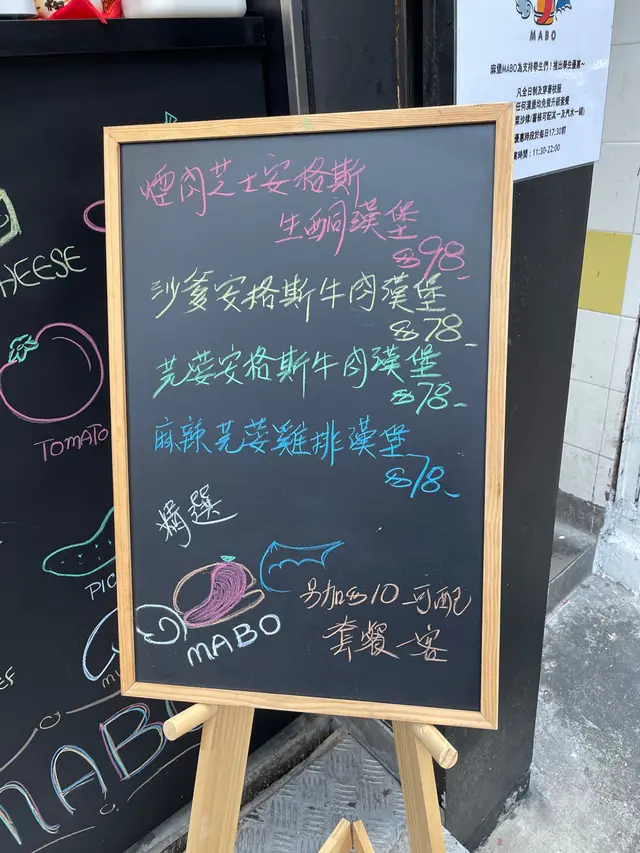 MABO
麻堡MABO為支持學生們！推出學生優惠~
凡全日制及穿著校服
任何漢堡均免費升級套餐
優惠時段於每日17:30前
時間：11:30-22:00
煙肉芝士安格斯
生酮漢堡
$98
沙爹安格斯牛肉漢堡
$78
芫荽安格斯牛肉漢堡
$78
麻辣芫荽雞排漢堡
$78
精選
MABO
另加$10可配
套餐一客
HEESE
TOMATO
PIC
MAB